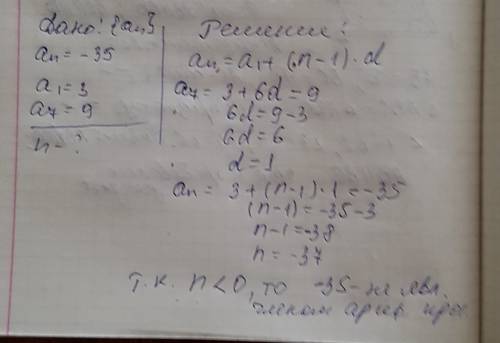 Дано: {an}
an = -35
a1 = 3
a7 = 9
n - ?
Решение:
an = a1 + (n-1)·d
a7 = 3+6d=9
6d=9-3
6d=6
d=1
an = 3+(n-1)·1=-35
(n-1)=-35-3
n-1=-38
n=-37
т.к. n<0, то -35- не явл.
членом ариф. прог.